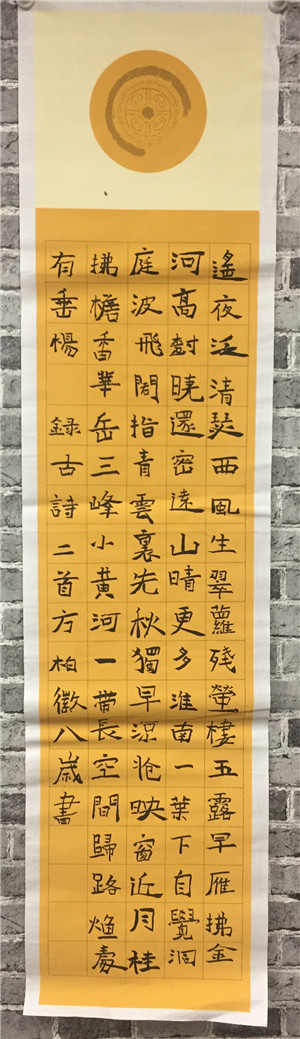 遙夜泛清瑟西風生翠蘿殘螢棲五露早雁拂金
河高樹曉還密遠山晴更多淮南一葉下自覺洞
庭波飛閣指青雲裏先秋獨早涼映窗近月桂
拂檐香華岳三峰小黃河一帶長空間歸路煙處
有垂愓 錄古詩二首方柏徽八歲書